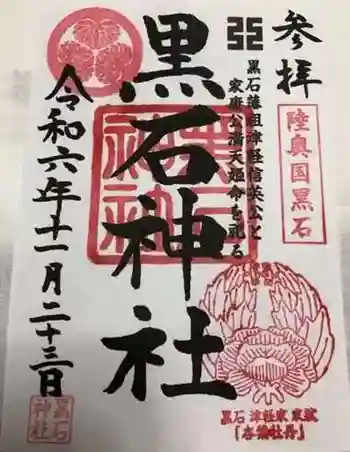 参拝
陸奥国黒石
黒石藩祖津軽信英公と
家康公満天姫命を祀る
黒石神社
黒石神社
令和六年十一月二十三日
黒石神社
黒石 津軽家 家紋
「杏葉牡丹」